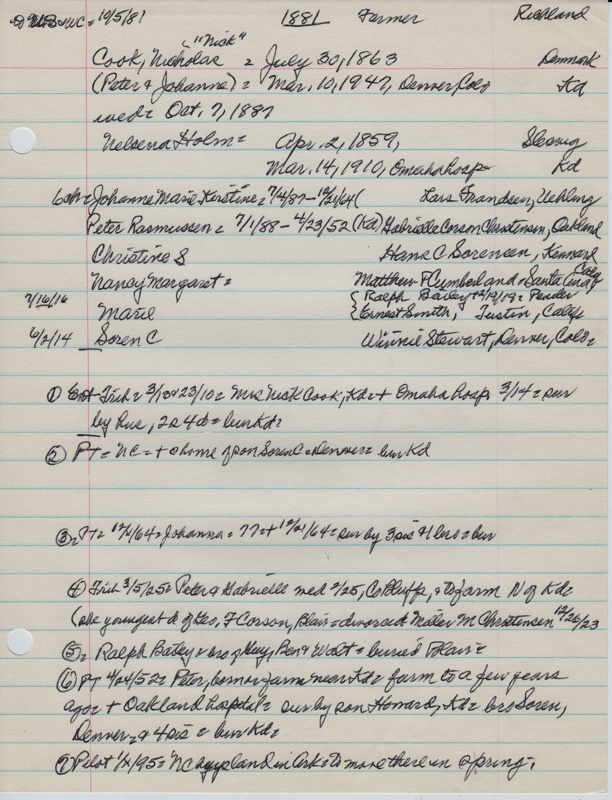 10/5/81 1881 Farmer Richland
"Nick"
Cook, Nicholas = July 30, 1863 Denmark
(Peter & Johanne) = Mar. 10, 1947, Denver, Colo Kd
wed = Oct. 7, 1887
Nelsena Holm = Apr. 2, 1859, Slesvig
Mar. 14, 1910, Omaha hosp Kd
6 ch = Johanne Marie Kerstine = 7/4/87 - 12/21/64 ( Lars Frandsen, Uehling
Peter Rasmussen = 7/1/88 - 4/23/52 (Kd) Gabrielle Corson Christensen, Oakland
Christine S Hans C Sorensen, Kennard
Nancy Margaret = Matthew F Cumberland = Santa Ana, Calif
7/16/16 Marie { Ralph Bailey + 2/19/19 = Pender
{ Ernest Smith, Tustin, Calif
6/2/14 Soren C Winnie Stewart, Denver, Colo =
① Ent-Trib = 3/18 & 23/10 = Mrs Nick Cook, Kd = + Omaha hosp 3/14 = sur
by hus, 2 s 4 d = bur Kd =
② PT = NC = + @ home of son Soren C = Denver = bur Kd
③ = PT = 12/ /64 = Johanna = 77 = + 12/21/64 = sur by 3 sis & 1 bro = bur
④ Trib 3/5/25 = Peter & Gabrielle wed 2/25, Co Bluffs, = to farm N of Kd =
(she youngest d of Geo, F Corson, Blair = divorced Miller M Christensen 12/26/23
⑤ = Ralph Bailey = bro of Guy, Ben & Walt = buried Blair =
⑥ PT 4/24/52 = Peter, born on farm near Kd = farm to a few years
ago = + Oakland hospital = sur by son Howard, Kd = bro Soren,
Denver = & 4 sis = bur Kd =
⑦ Pilot 1/ /95 = NC buys land in Ark = to move there in spring =